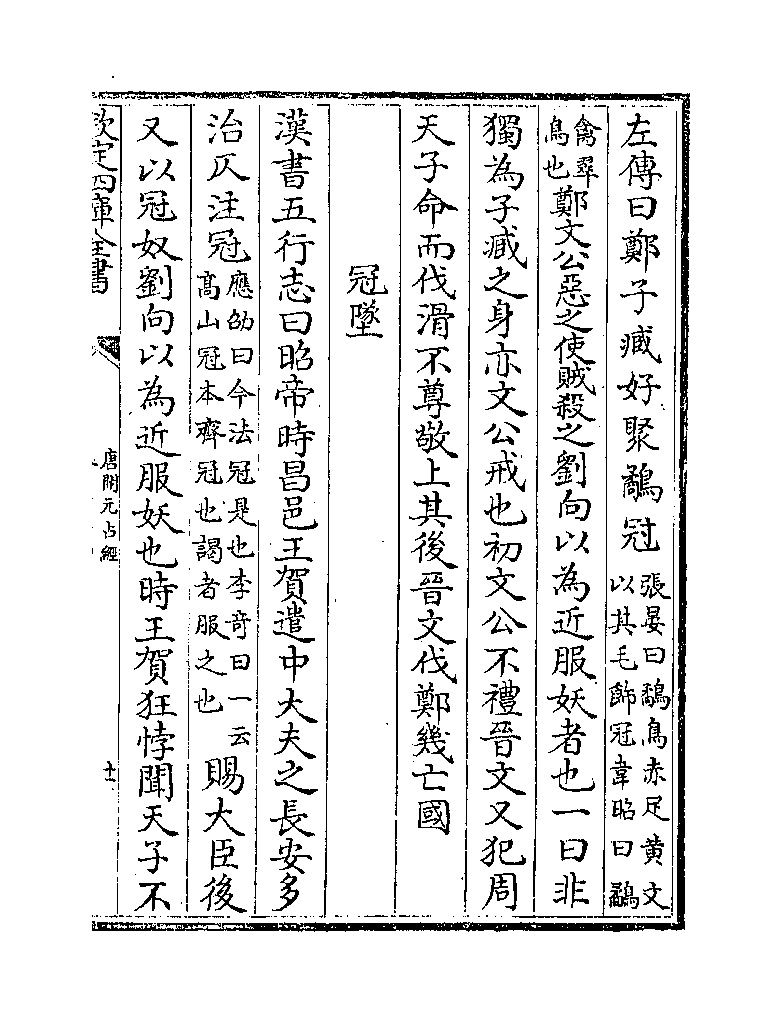 左傳曰鄭子臧好聚鷸冠張晏曰鷸鳥赤足黃文
以其毛飾冠韋昭曰鷸
禽翠
鳥也鄭文公惡之使賊殺之劉向以為近服妖者也一曰非
獨為子臧之身亦文公戒也初文公不禮晉文又犯周
天子命而伐滑不尊敬上其後晉文伐鄭幾亡國
冠墜
漢書五行志曰昭帝時昌邑王賀遣中大夫之長安多
治仄注冠應劭曰今法冠是也李竒曰一云
高山冠本齊冠也謁者服之也賜大臣後
又以冠奴劉向以為近服妖也時王賀狂悖聞天子不
欽定四庫全書
唐開元占經